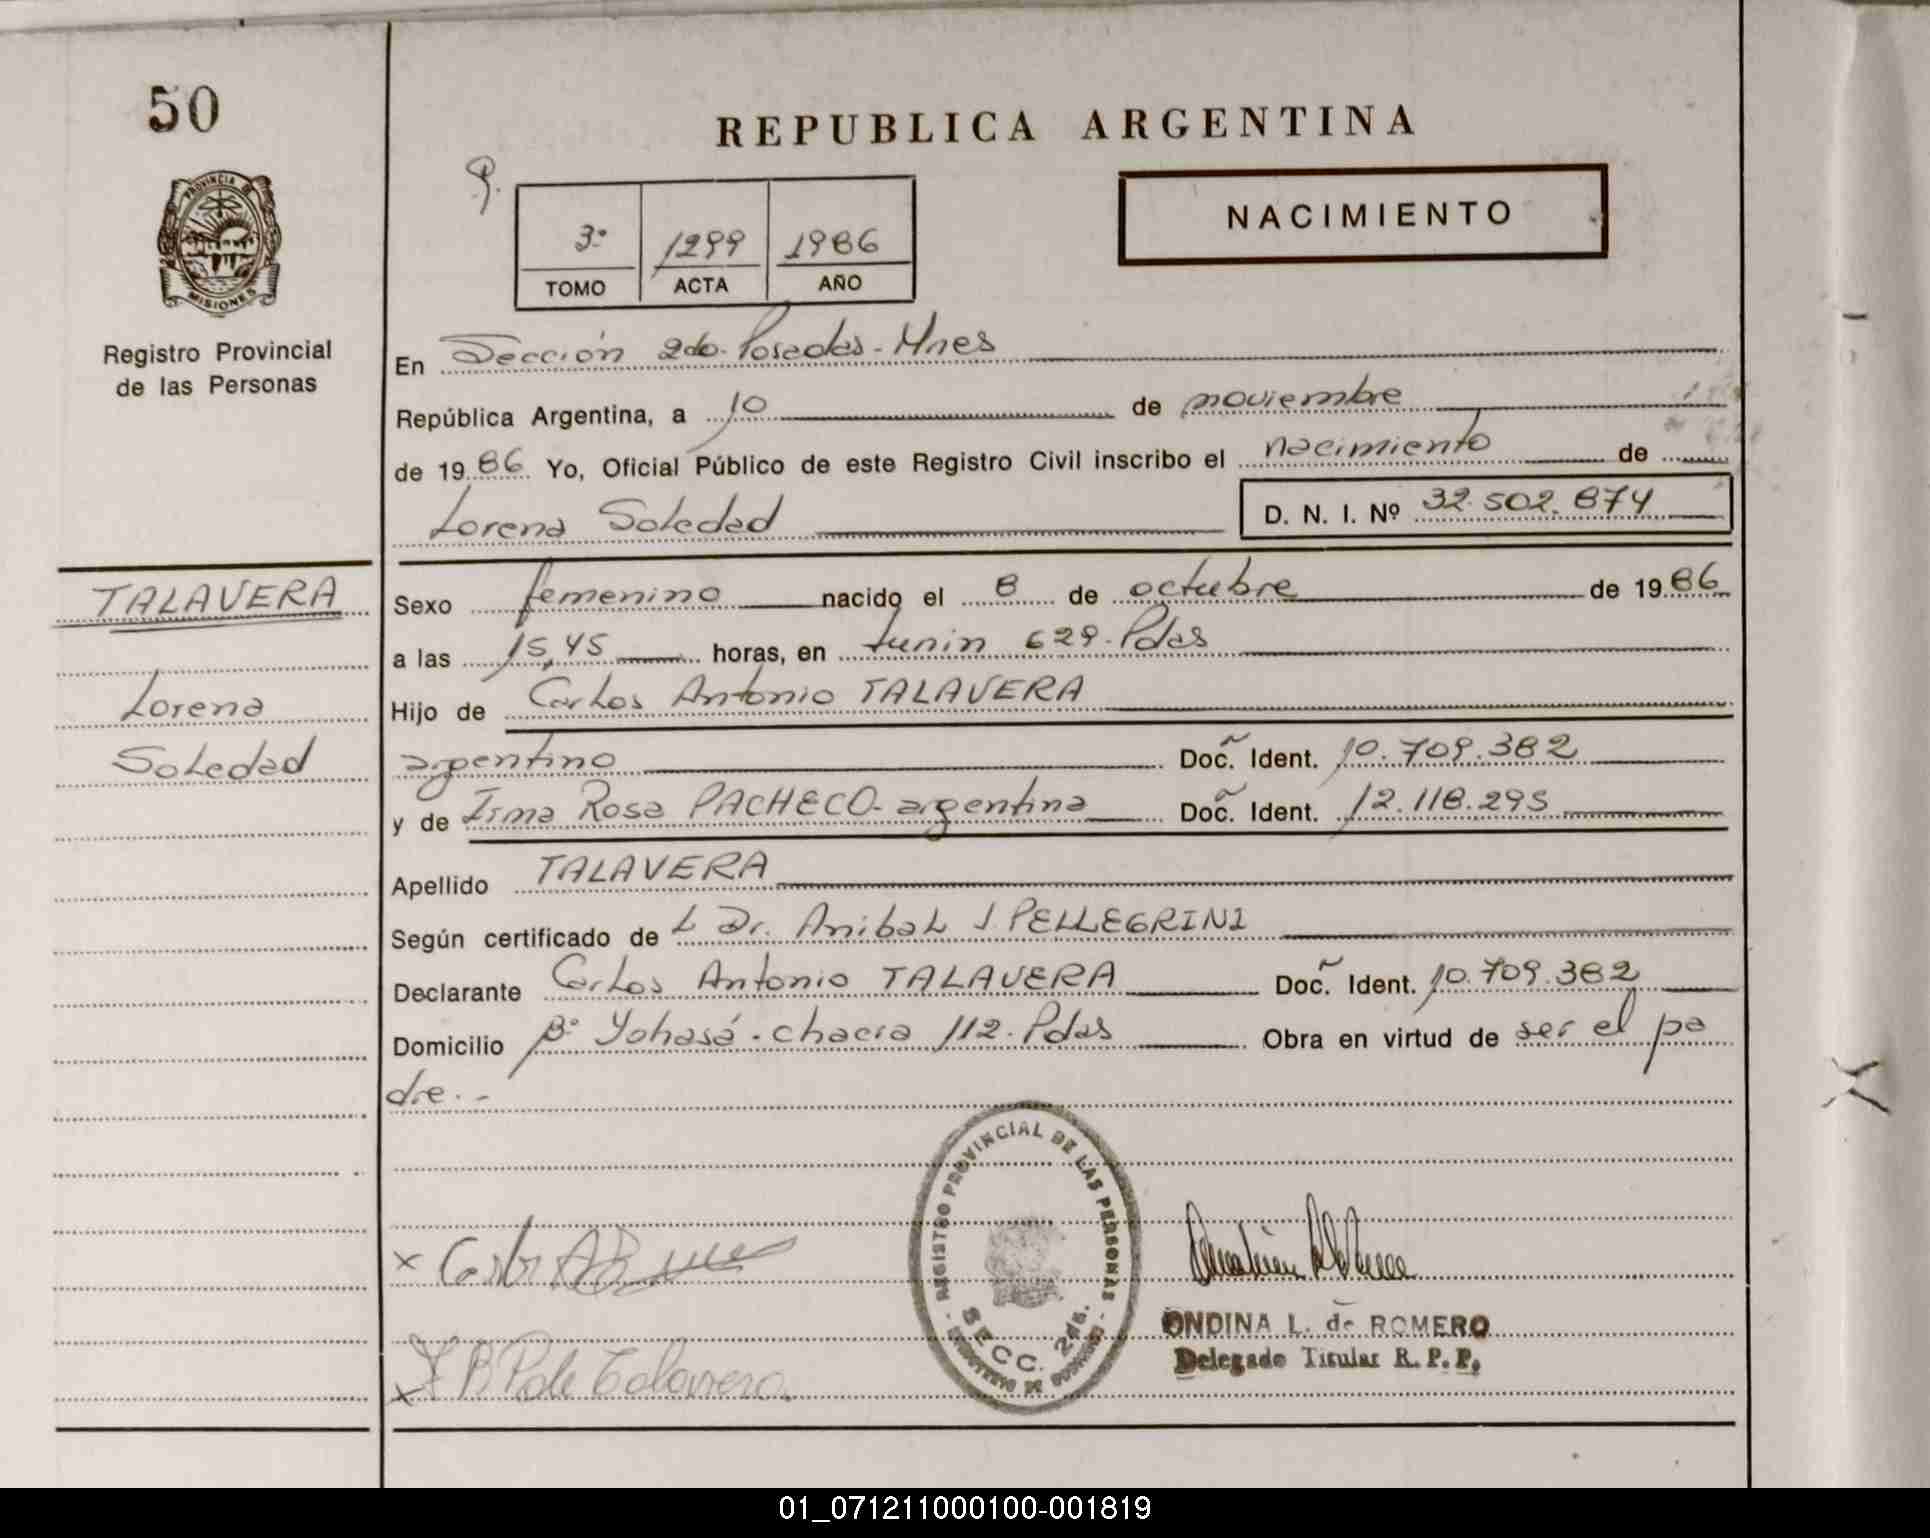 50
REPUBLICA ARGENTINA
PROVINCIA DE
MISIONES
Registro Provincial
de las Personas
3º 1299 1986
TOMO ACTA AÑO
NACIMIENTO
En Sección 2da. Posadas - Mnes
República Argentina, a 10 de noviembre
de 1986 Yo, Oficial Público de este Registro Civil inscribo el nacimiento de
Lorena Soledad D. N. I. Nº 32.502.874
TALAVERA
Lorena
Soledad
Sexo femenino nacido el 8 de octubre de 1986
a las 15,45 horas, en Junin 629. Pdas
Hijo de Carlos Antonio TALAVERA
argentino Doc. Ident. 10.709.382
y de Irma Rosa PACHECO - argentina Doc. Ident. 12.118.295
Apellido TALAVERA
Según certificado de L Dr. Anibal J. PELLEGRINI
Declarante Carlos Antonio TALAVERA Doc. Ident. 10.709.382
Domicilio Bº Yohasá - chacra 112. Pdas Obra en virtud de ser el pa
dre.-
REGISTRO PROVINCIAL DE LAS PERSONAS
SECC. 2da.
MINISTERIO DE GOBIERNO
x
ONDINA L. de ROMERO
Delegado Titular R. P. P.
x P de Talavera
01_071211000100-001819